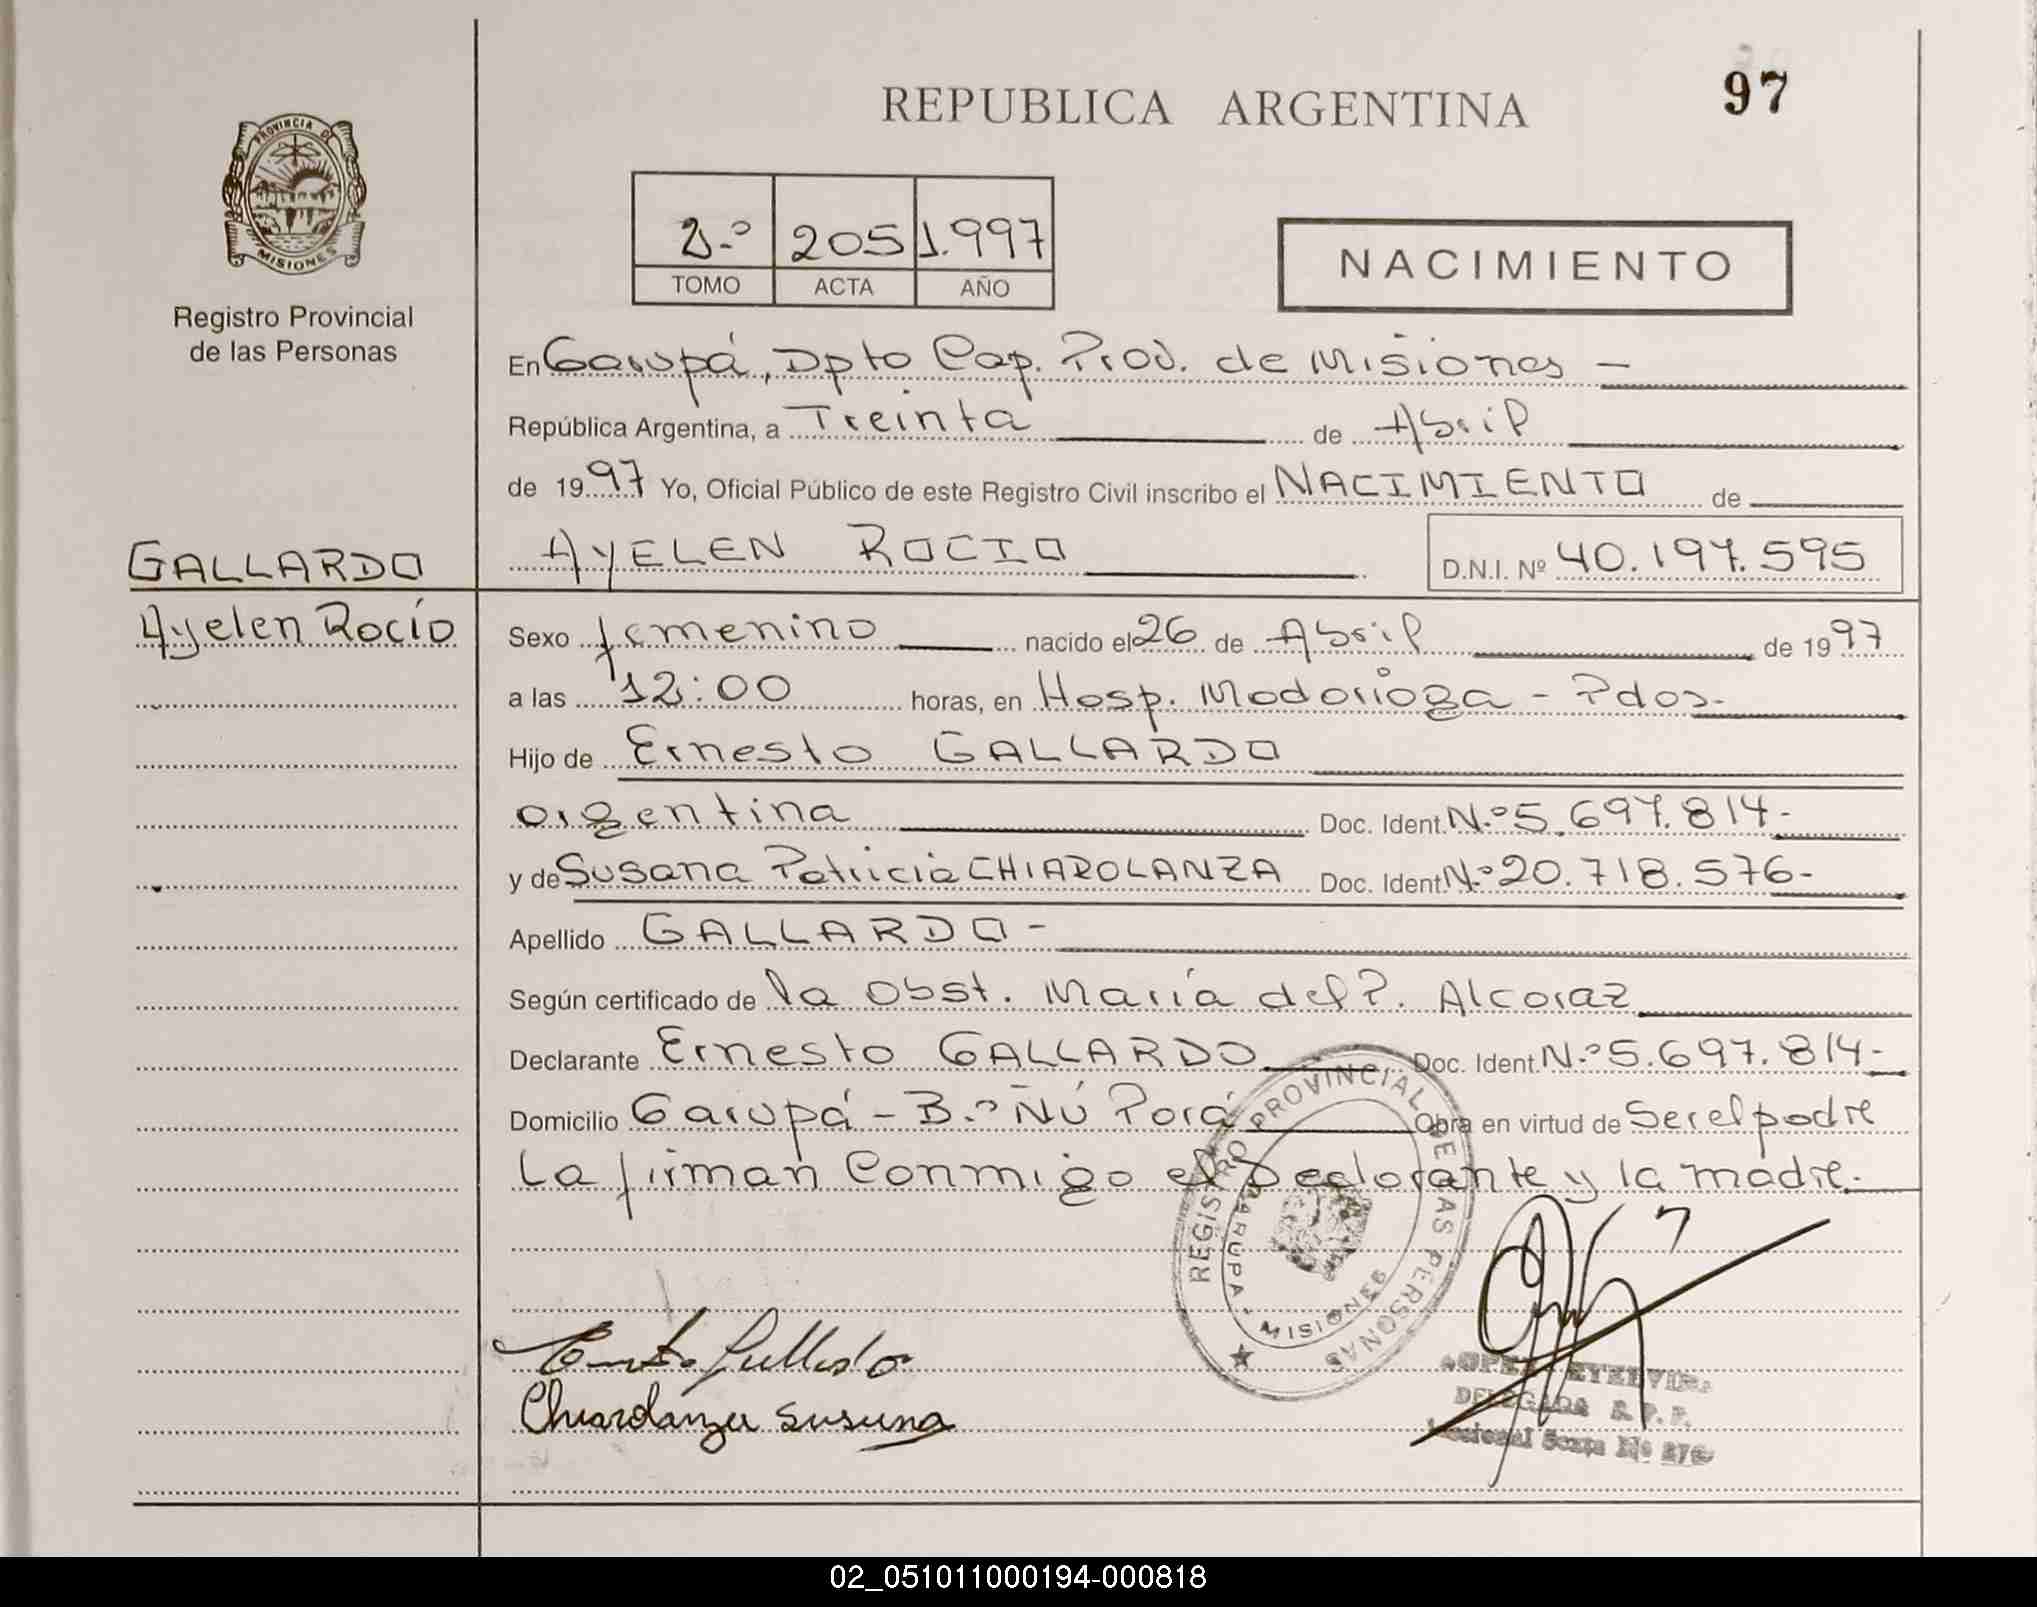 REPUBLICA ARGENTINA
97
PROVINCIA DE
MISIONES
Registro Provincial
de las Personas
2.º 205 1.997
TOMO ACTA AÑO
NACIMIENTO
En Garupá, Dpto Cap. Prov. de Misiones -
República Argentina, a Treinta de Abril
de 1997 Yo, Oficial Público de este Registro Civil inscribo el NACIMIENTO de
GALLARDO
AYELEN ROCIO
D.N.I. Nº 40.197.595
Ayelen Rocío
Sexo femenino nacido el 26 de Abril de 1997
a las 12:00 horas, en Hosp. Madariaga - Pdas-
Hijo de Ernesto GALLARDO
argentina Doc. Ident. N.º 5.697.814-
y de Susana Patricia CHIAROLANZA Doc. Ident. N.º 20.718.576-
Apellido GALLARDO -
Según certificado de la Obst. María del P. Alcaraz
Declarante Ernesto GALLARDO Doc. Ident. N.º 5.697.814-
Domicilio Garupá - B.º Ñú Porá Obra en virtud de Ser el padre
La firman Conmigo el Declarante y la madre.-
REGISTRO PROVINCIAL DE LAS PERSONAS
GARUPA - MISIONES
Ernesto Gallardo
Chiarolanza Susana
ETELVINA
DELEGADA R. P. P.
Seccional Sexta Nº
02_051011000194-000818